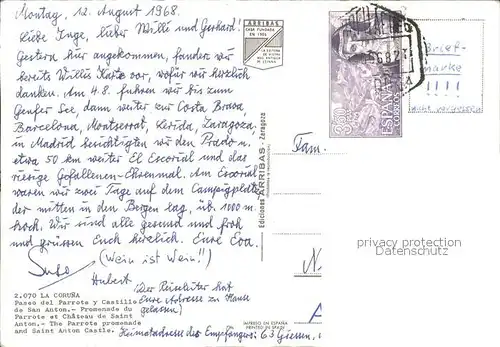 Montag, 12. August 1968.
Liebe Inge, lieber Willi und Gerhard!
Gestern hier angekommen, fanden wir
bereits Willis Karte vor, wofür wir herzlich
danken. Am 4.8. fuhren wir bis zum
Genfer See, dann weiter zur Costa Brava,
Barcelona, Montserrat, Lerida, Zaragoza,
in Madrid besichtigten wir den Prado u.
etwa 50 km weiter El Escorial und das
riesige Gefallenen-Ehrenmal. Am Escorial
waren wir zwei Tage auf dem Campingplatz
der mitten in den Bergen lag, üb. 1000 m
hoch. Wir sind alle gesund und froh
und grüssen Euch herzlich. Eure Eva.
(Wein ist Wein!!)
Hubert
(Der Reiseleiter hat
Eure Adresse zu Hause
gelassen)
Heimatadresse des Empfängers: 63 Giessen,
2.070 LA CORUÑA
Paseo del Parrote y Castillo
de San Anton.- Promenade du
Parrote et Château de Saint
Anton.- The Parrote promenade
and Saint Anton Castle.
ARRIBAS
CASA FUNDADA
Ediciones ARRIBAS - Zaragoza
IMPRESO EN ESPAÑA
PRINTED IN SPAIN
ESPAÑA
CORREOS
Brief-
marke
!!!!
nicht vergessen
Fam.
privacy protection
Datenschutz